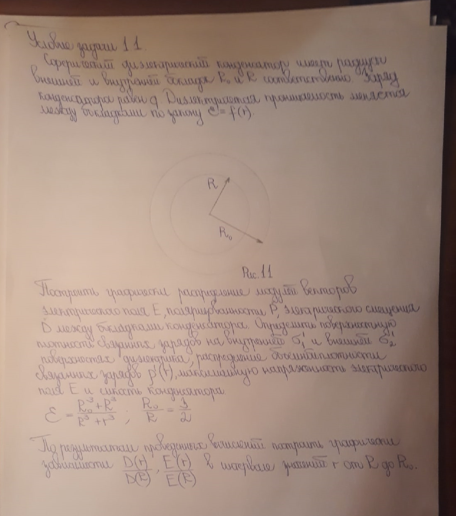 Условие задачи 1.1
Сферический диэлектрический конденсатор имеет радиусы
внешней и внутренней обкладок R₀ и R соответственно. Заряд
конденсатора равен q. Диэлектрическая проницаемость меняется
между обкладками по закону ε = f(r).
R
R₀
Рис. 1.1
Построить графически распределение модулей векторов
электрического поля E, поляризованности P, электрического смещения
D между обкладками конденсатора. Определить поверхностную
плотность связанных зарядов на внутренней σ'₁ и внешней σ'₂
поверхностях диэлектрика, распределение объемной плотности
связанных зарядов ρ'(r), максимальную напряженность электрического
поля E и емкость конденсатора.
ε = ; R₀/R = 3/2
По результатам проведенных вычислений построить графически
зависимости D(r)/D(R), E(r)/E(R) в интервале значений r от R до R₀.